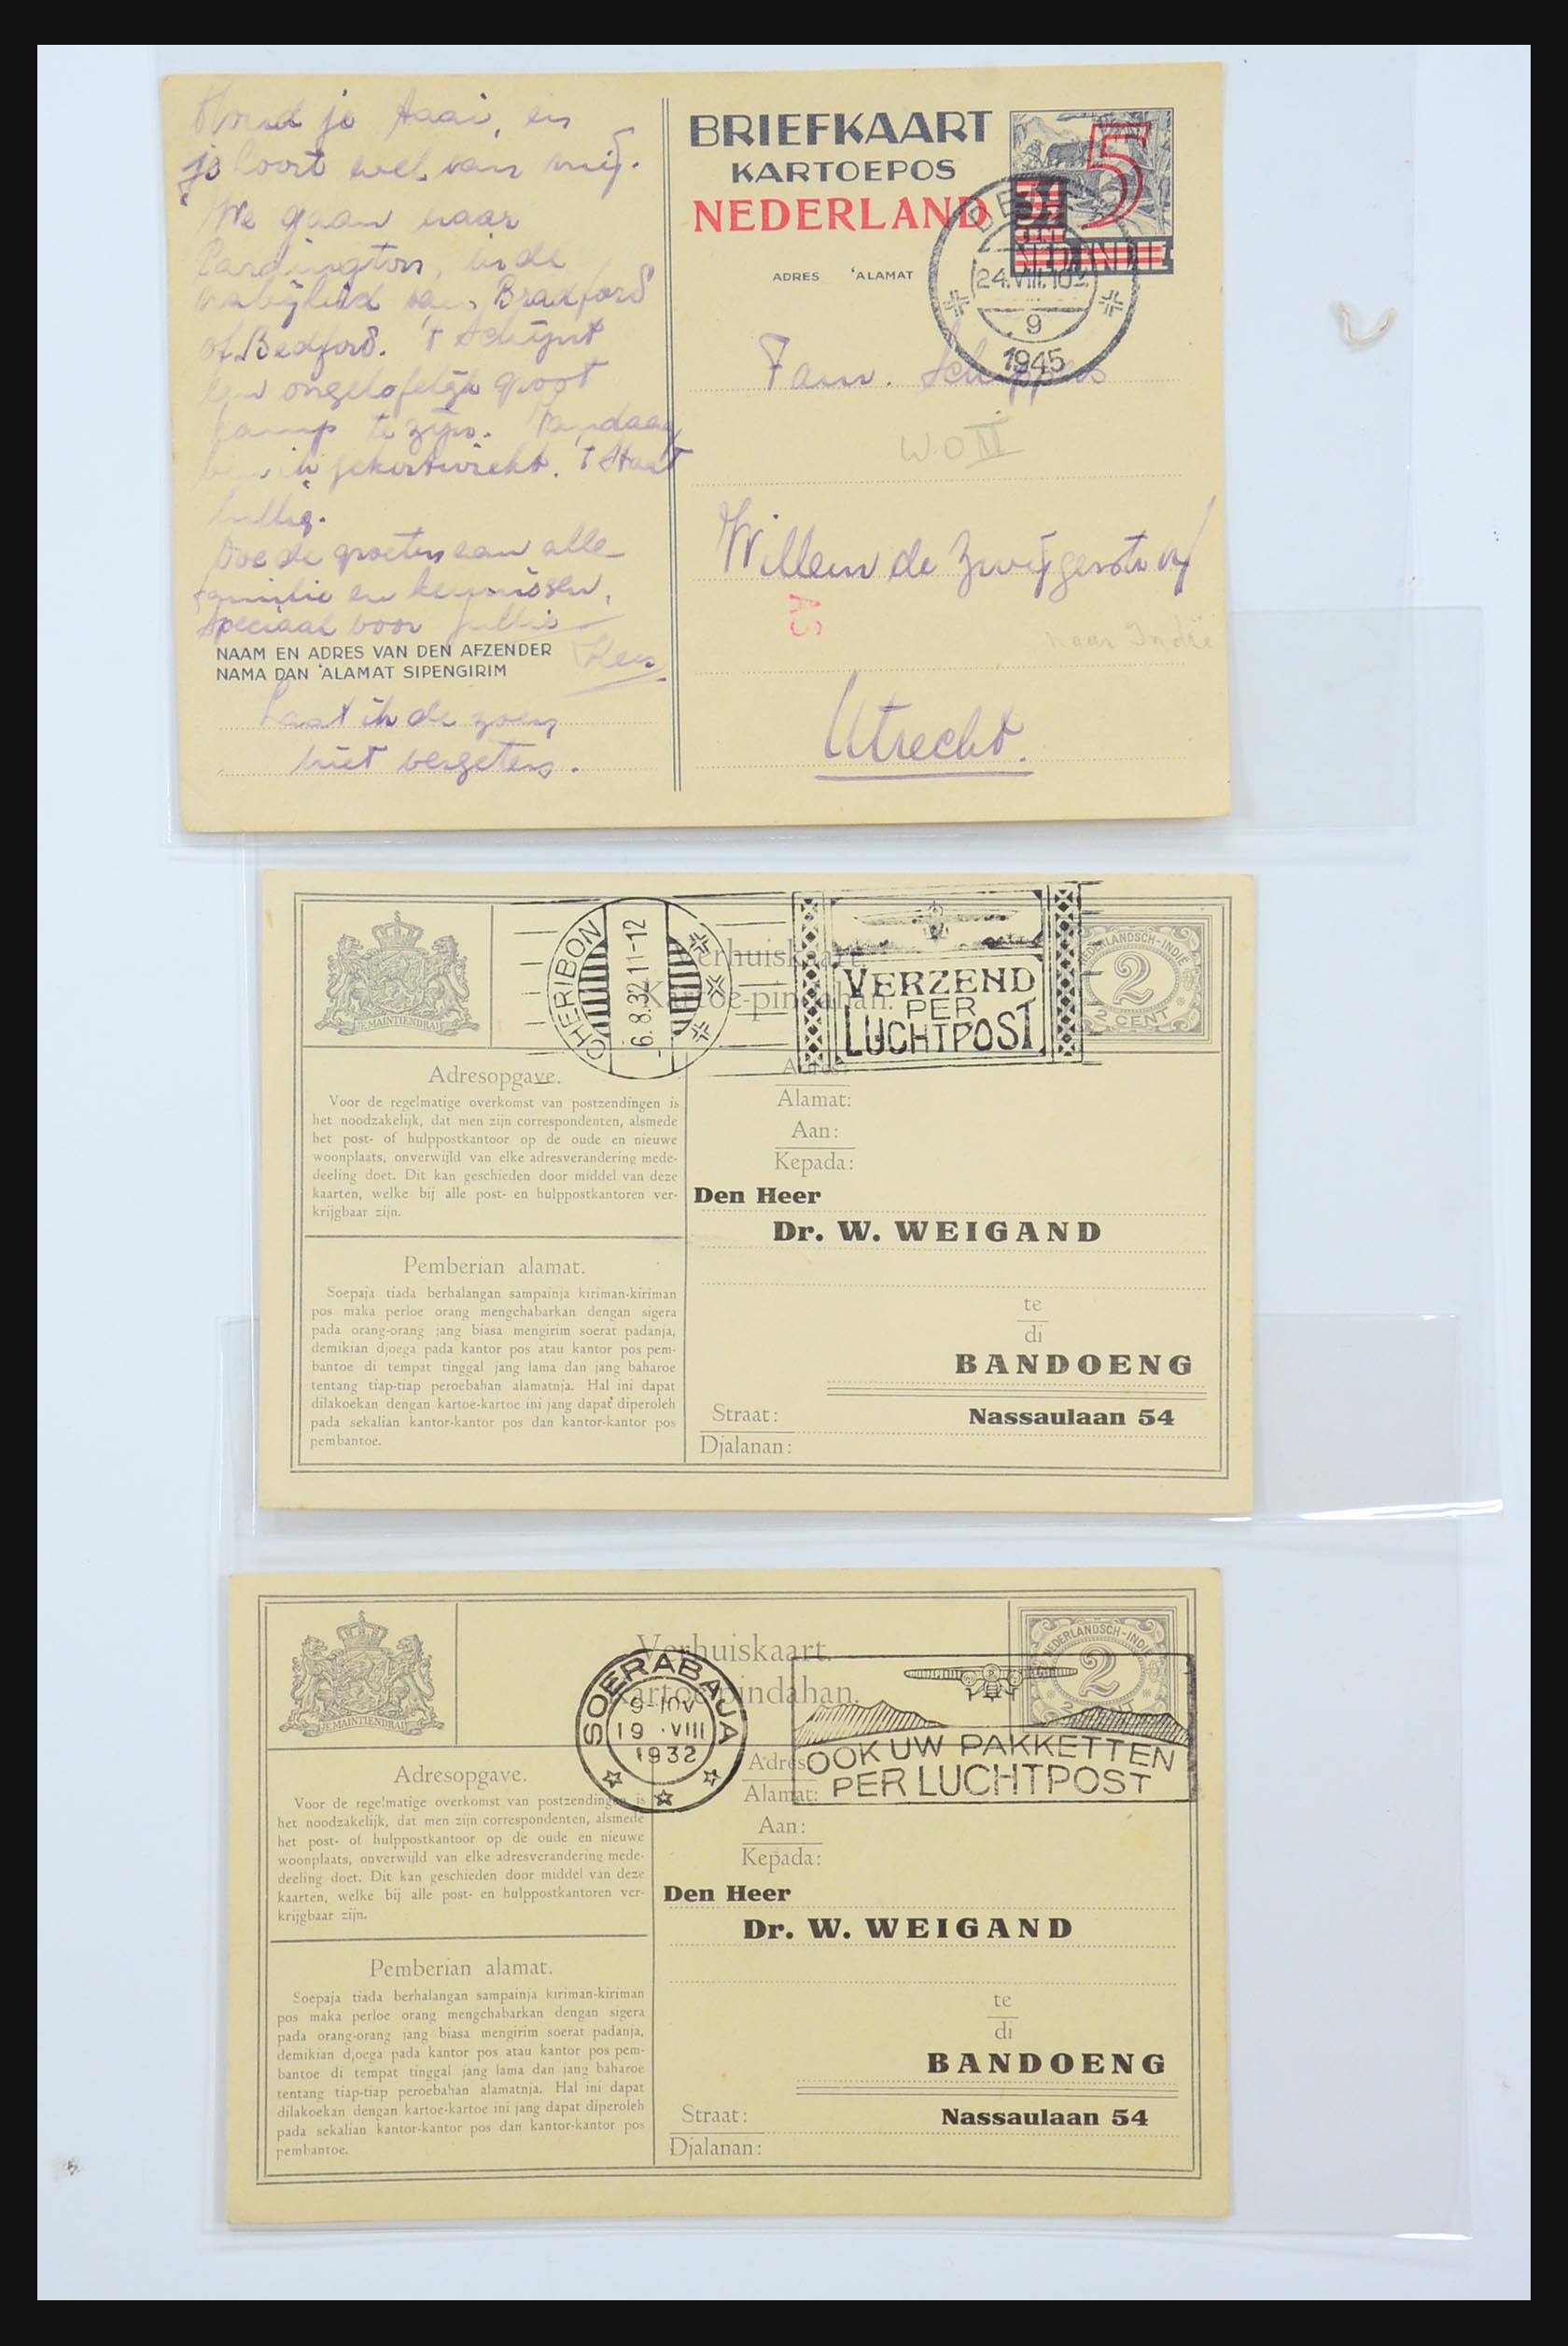 Houd je taai, en
je hoort wel van mij.
We gaan naar
Pardington, in de
nabijheid van Bradford
of Bedford. 't Schijnt
een ongelofelijk groot
kamp te zijn. Vandaag
ben ik gekortwiekt. 't Staat
lullig.
Doe de groeten aan alle
familie en kennissen,
speciaal voor jullie
Kees
NAAM EN ADRES VAN DEN AFZENDER
NAMA DAN 'ALAMAT SIPENGIRIM
Laat ik de zoen
niet vergeten.
BRIEFKAART
KARTOEPOS
NEDERLAND
5
3½
NED. INDIE
ADRES 'ALAMAT
24.VIII.10
9
1945
Fam. Schippers
W.O II
Willem de Zwijgerstr
AS
naar Indië
Utrecht.
JE MAINTIENDRAI
Verhuiskaart.
Kartoe-pindahan.
CHERIBON
-6.8.32 11-12
VERZEND
PER
LUCHTPOST
NEDERLANDSCH-INDIË
2
2 CENT
Adresopgave.
Voor de regelmatige overkomst van postzendingen is
het noodzakelijk, dat men zijn correspondenten, alsmede
het post- of hulppostkantoor op de oude en nieuwe
woonplaats, onverwijld van elke adresverandering mede-
deeling doet. Dit kan geschieden door middel van deze
kaarten, welke bij alle post- en hulppostkantoren ver-
krijgbaar zijn.
Pemberian alamat.
Soepaja tiada berhalangan sampainja kiriman-kiriman
pos maka perloe orang mengchabarkan dengan sigera
pada orang-orang jang biasa mengirim soerat padanja,
demikian djoega pada kantor pos atau kantor pos pem-
bantoe di tempat tinggal jang lama dan jang baharoe
tentang tiap-tiap peroebahan alamatnja. Hal ini dapat
dilakoekan dengan kartoe-kartoe ini jang dapat diperoleh
pada sekalian kantor-kantor pos dan kantor-kantor pos
pembantoe.
Adres:
Alamat:
Aan:
Kepada:
Den Heer
Dr. W. WEIGAND
te
di
BANDOENG
Straat:
Nassaulaan 54
Djalanan:
JE MAINTIENDRAI
Verhuiskaart.
Kartoe-pindahan.
SOERABAJA
9-10V
19 .VIII
1932
OOK UW PAKKETTEN
PER LUCHTPOST
NEDERLANDSCH-INDIË
2
2 CENT
Adresopgave.
Voor de regelmatige overkomst van postzendingen is
het noodzakelijk, dat men zijn correspondenten, alsmede
het post- of hulppostkantoor op de oude en nieuwe
woonplaats, onverwijld van elke adresverandering mede-
deeling doet. Dit kan geschieden door middel van deze
kaarten, welke bij alle post- en hulppostkantoren ver-
krijgbaar zijn.
Pemberian alamat.
Soepaja tiada berhalangan sampainja kiriman-kiriman
pos maka perloe orang mengchabarkan dengan sigera
pada orang-orang jang biasa mengirim soerat padanja,
demikian djoega pada kantor pos atau kantor pos pem-
bantoe di tempat tinggal jang lama dan jang baharoe
tentang tiap-tiap peroebahan alamatnja. Hal ini dapat
dilakoekan dengan kartoe-kartoe ini jang dapat diperoleh
pada sekalian kantor-kantor pos dan kantor-kantor pos
pembantoe.
Adres:
Alamat:
Aan:
Kepada:
Den Heer
Dr. W. WEIGAND
te
di
BANDOENG
Straat:
Nassaulaan 54
Djalanan: